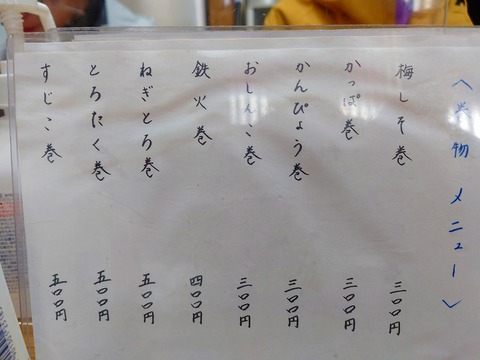 <巻物メニュー>
梅しそ巻 三〇〇円
かっぱ巻 三〇〇円
かんぴょう巻 三〇〇円
おしんこ巻 三〇〇円
鉄火巻 四〇〇円
ねぎとろ巻 五〇〇円
とろたく巻 五〇〇円
すじこ巻 五〇〇円